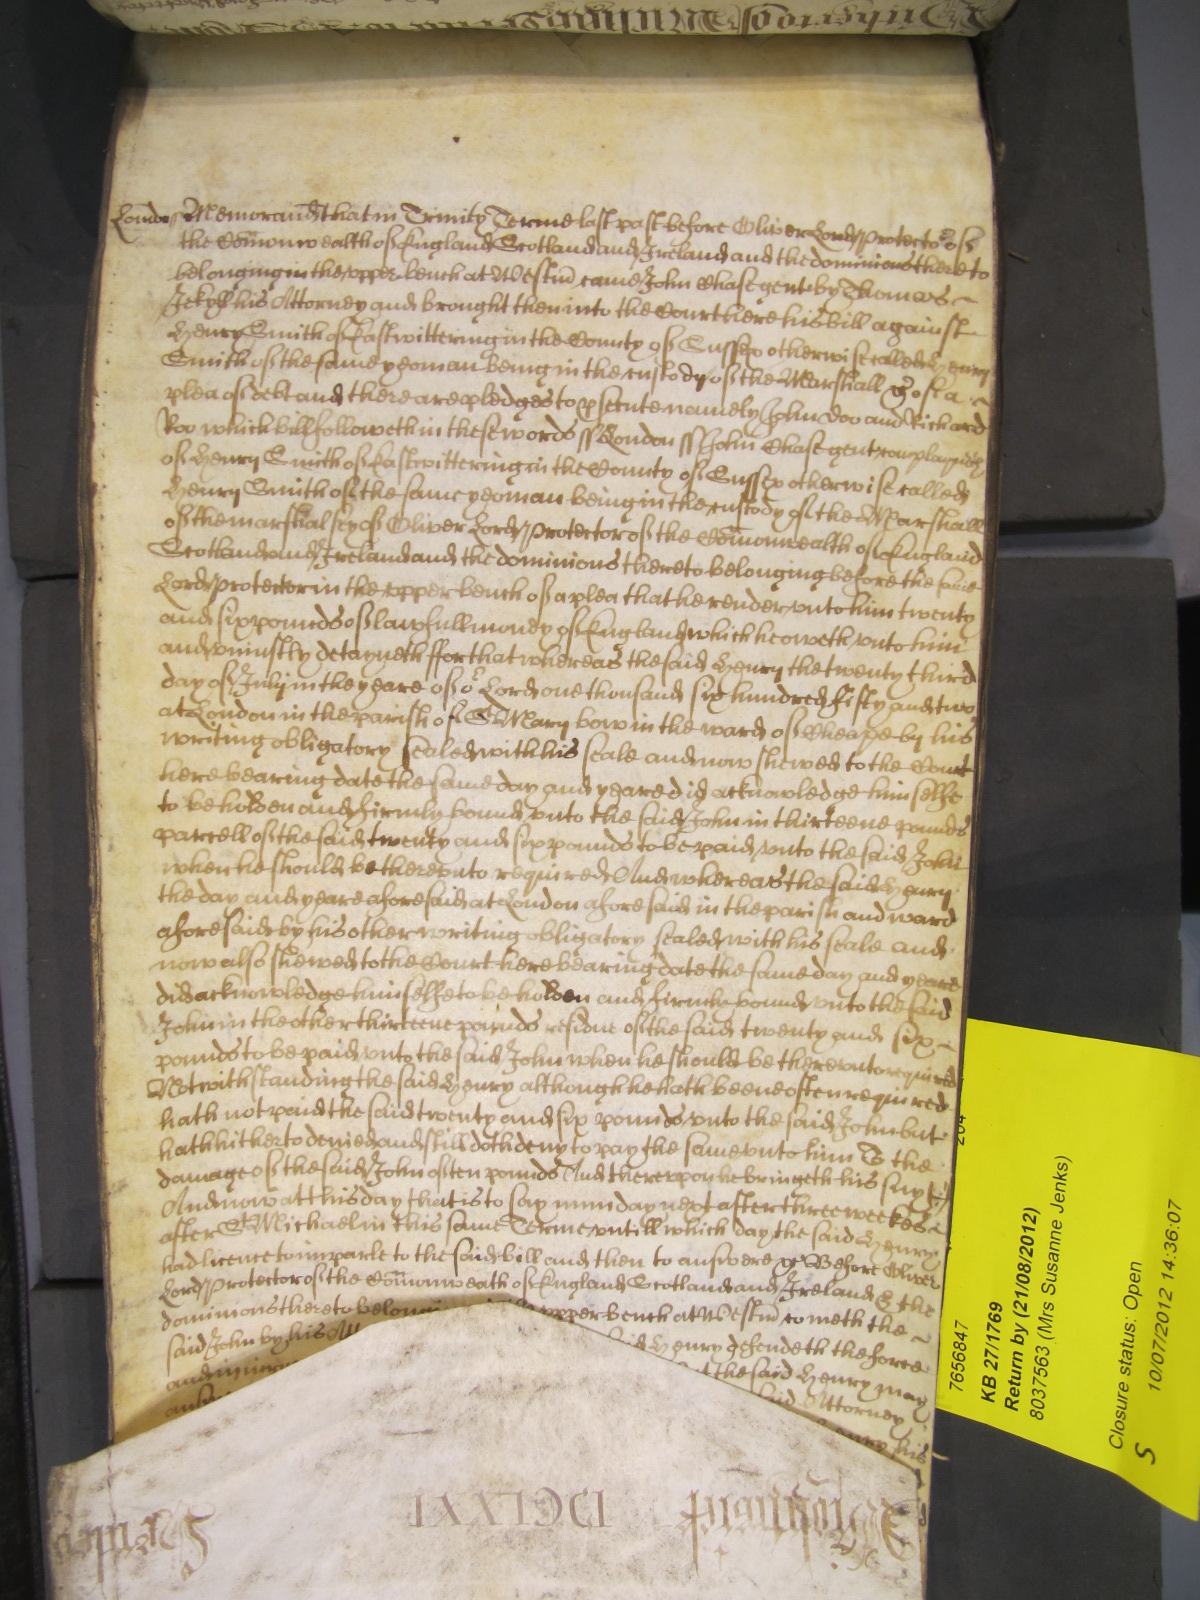 London Memorand that in Trinity Terme last past before Oliver Lord Protector of
the Comonwealth of England Scotland and Ireland and the dominions thereto
belonging in the upper bench at Westm came John Chase gent by Thomas
Jekyll his Attorney and brought then into the Court here his bill against
Henry Smith of Eastwittering in the County of Sussex otherwise called Henry
Smith of the same yeoman being in the custody of the Marshall &c of a
plea of debt and there are pledges to psecute namely John Doo and Richard
Roo which bill followeth in these words ss London ss John Chase gent complayneth
of Henry Smith of Eastwittering in the County of Sussex otherwise called
Henry Smith of the same yeoman being in the custody of the Marshall
of the marshalsey of Oliver Lord Protector of the Comonwealth of England
Scotland and Ireland and the dominions thereto belonging before the same
Lord Protector in the upper bench of a plea that he render unto him twenty
and six pounds of lawfull money of England which he oweth unto him
and uniustly detayneth ffor that whereas the said Henry the twenty third
day of July in the yeare of or Lord one thousand six hundred fifty and two
at London in the parish of St Mary bow in the ward of Cheape by his
writing obligatory sealed with his seale and now shewed to the Court
here bearing date the same day and yeare did acknowledge himselfe
to be holden and firmly bound unto the said John in thirteene pounds
parcell of the said twenty and six pounds to be paid unto the said John
when he should be thereunto required And whereas the said Henry
the day and yeare aforesaid at London aforesaid in the parish and ward
aforesaid by his other writing obligatory sealed with his seale and
now also shewed to the Court here bearing date the same day and yeare
did acknowledge himselfe to be holden and firmly bound unto the said
John in the other thirteene pounds residue of the said twenty and six
pounds to be paid unto the said John when he should be thereunto required
Notwithstanding the said Henry although he hath beene often required
hath not paid the said twenty and six pounds unto the said John but
hath hitherto denied and still doth deny to pay the same unto him To the
damage of the said John of ten pounds And thereupon he bringeth his suyt &c
And now at this day that is to say munday next after three weekes
after St Michael in this same Terme untill which day the said Henry
had licence to imparle to the said bill and then to answere &c Before Oliver
Lord Protector of the Comonweath of England Scotland and Ireland & the
dominions thereto belongi upper bench at Westm cometh the
said John by his Att said Henry defendeth the force
and iniury t the said Henry may
said Attorney
his
DCLXXI
204
7656847
KB 27/1769
Return by (21/08/2012)
8037563 (Mrs Susanne Jenks)
Closure status: Open
10/07/2012 14:36:07
S